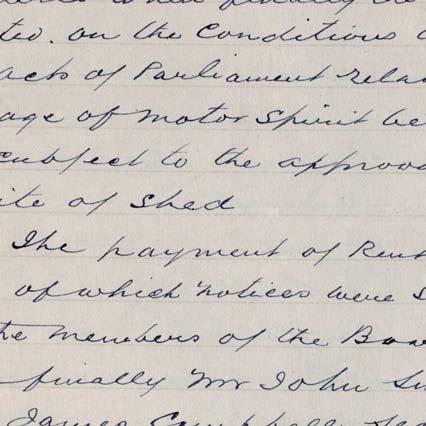 on the Conditions
Acts of Parliament rela
age of motor Spirit be
subject to the approva
ite of Shed
The payment of Rent
of which notices were S
he members of the Boa
finally Mr John
James Campbell